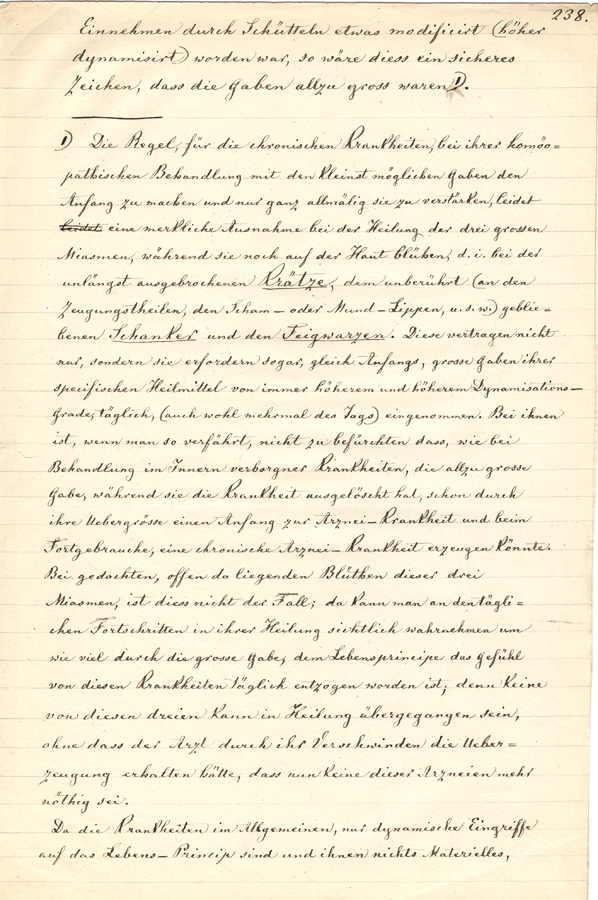 238.
Einnehmen durch Schütteln etwas modificirt (höher
dynamisirt) worden war, so wäre diess ein sicheres
Zeichen, dass die Gaben allzu gross waren 1).
1) Die Regel, für die chronischen Krankheiten, bei ihrer homöo=
pathischen Behandlung mit den kleinst möglichen Gaben den
Anfang zu machen und nur ganz allmälig sie zu verstärken, leidet
leidet eine merkliche Ausnahme bei der Heilung der drei grossen
Miasmen, während sie noch auf der Haut blühen, d. i. bei der
unlängst ausgebrochenen Krätze, dem unberührt (an den
Zeugungstheilen, den Scham- oder Mund-Lippen, u. s. w.) geblie=
benen Schanker und den Feigwarzen. Diese vertragen nicht
nur, sondern sie erfordern sogar, gleich Anfangs, grosse Gaben ihrer
specifischen Heilmittel von immer höherem und höherem Dynamisations-
Grade, täglich, (auch wohl mehrmal des Tags) eingenommen. Bei ihnen
ist, wenn man so verfährt, nicht zu befürchten dass, wie bei
Behandlung im Innern verborgner Krankheiten, die allzu grosse
Gabe, während sie die Krankheit ausgelöscht hat, schon durch
ihre Uebergrösse einen Anfang zur Arznei-Krankheit und beim
Fortgebrauche, eine chronische Arznei-Krankheit erzeugen könnte.
Bei gedachten, offen da liegenden Blüthen dieser drei
Miasmen, ist diess nicht der Fall; da kann man an den tägli=
chen Fortschritten in ihrer Heilung sichtlich wahrnehmen um
wie viel durch die grosse Gabe, dem Lebensprincipe das Gefühl
von diesen Krankheiten täglich entzogen worden ist; denn keine
von diesen dreien kann in Heilung übergegangen sein,
ohne dass der Arzt durch ihr Verschwinden die Ueber=
zeugung erhalten hätte, dass nun keine dieser Arzneien mehr
nöthig sei.
Da die Krankheiten im Allgemeinen, nur dynamische Eingriffe
auf das Lebens-Princip sind und ihnen nichts Materielles,